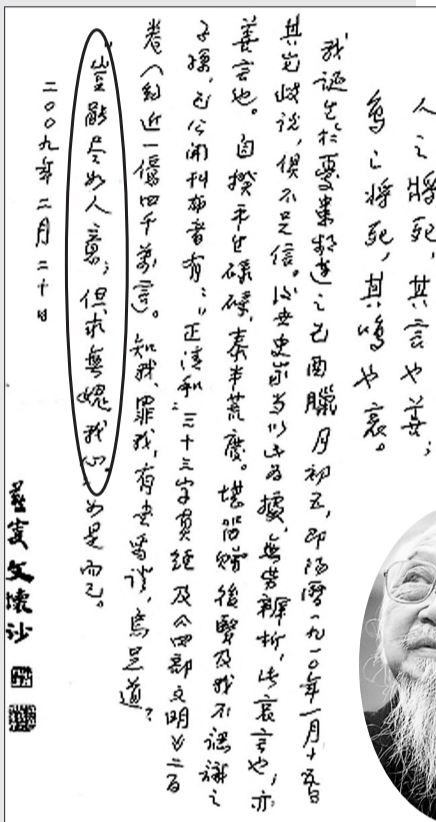 人之將死,其言也善;
鳥之將死,其鳴也哀。
我誕生於憂患頻遭之己酉臘月初五,即陽曆一九一〇年一月十五日
其它歧說,俱不足信。史家當以此為據,無勞辯析,此哀言也,亦
善言也。自揆平生碌碌,泰半荒廢。堪留贈後賢及我不認識之
子孫,已公開刊布者有:“正清和”三十三字真經及《四部文明》二百
卷(約近一億四千萬言)。知我、罪我,有,烏足道?
豈能尽如人意;但求無愧我心,如是而已。
二〇〇九年二月二十日
燕叟文懷沙